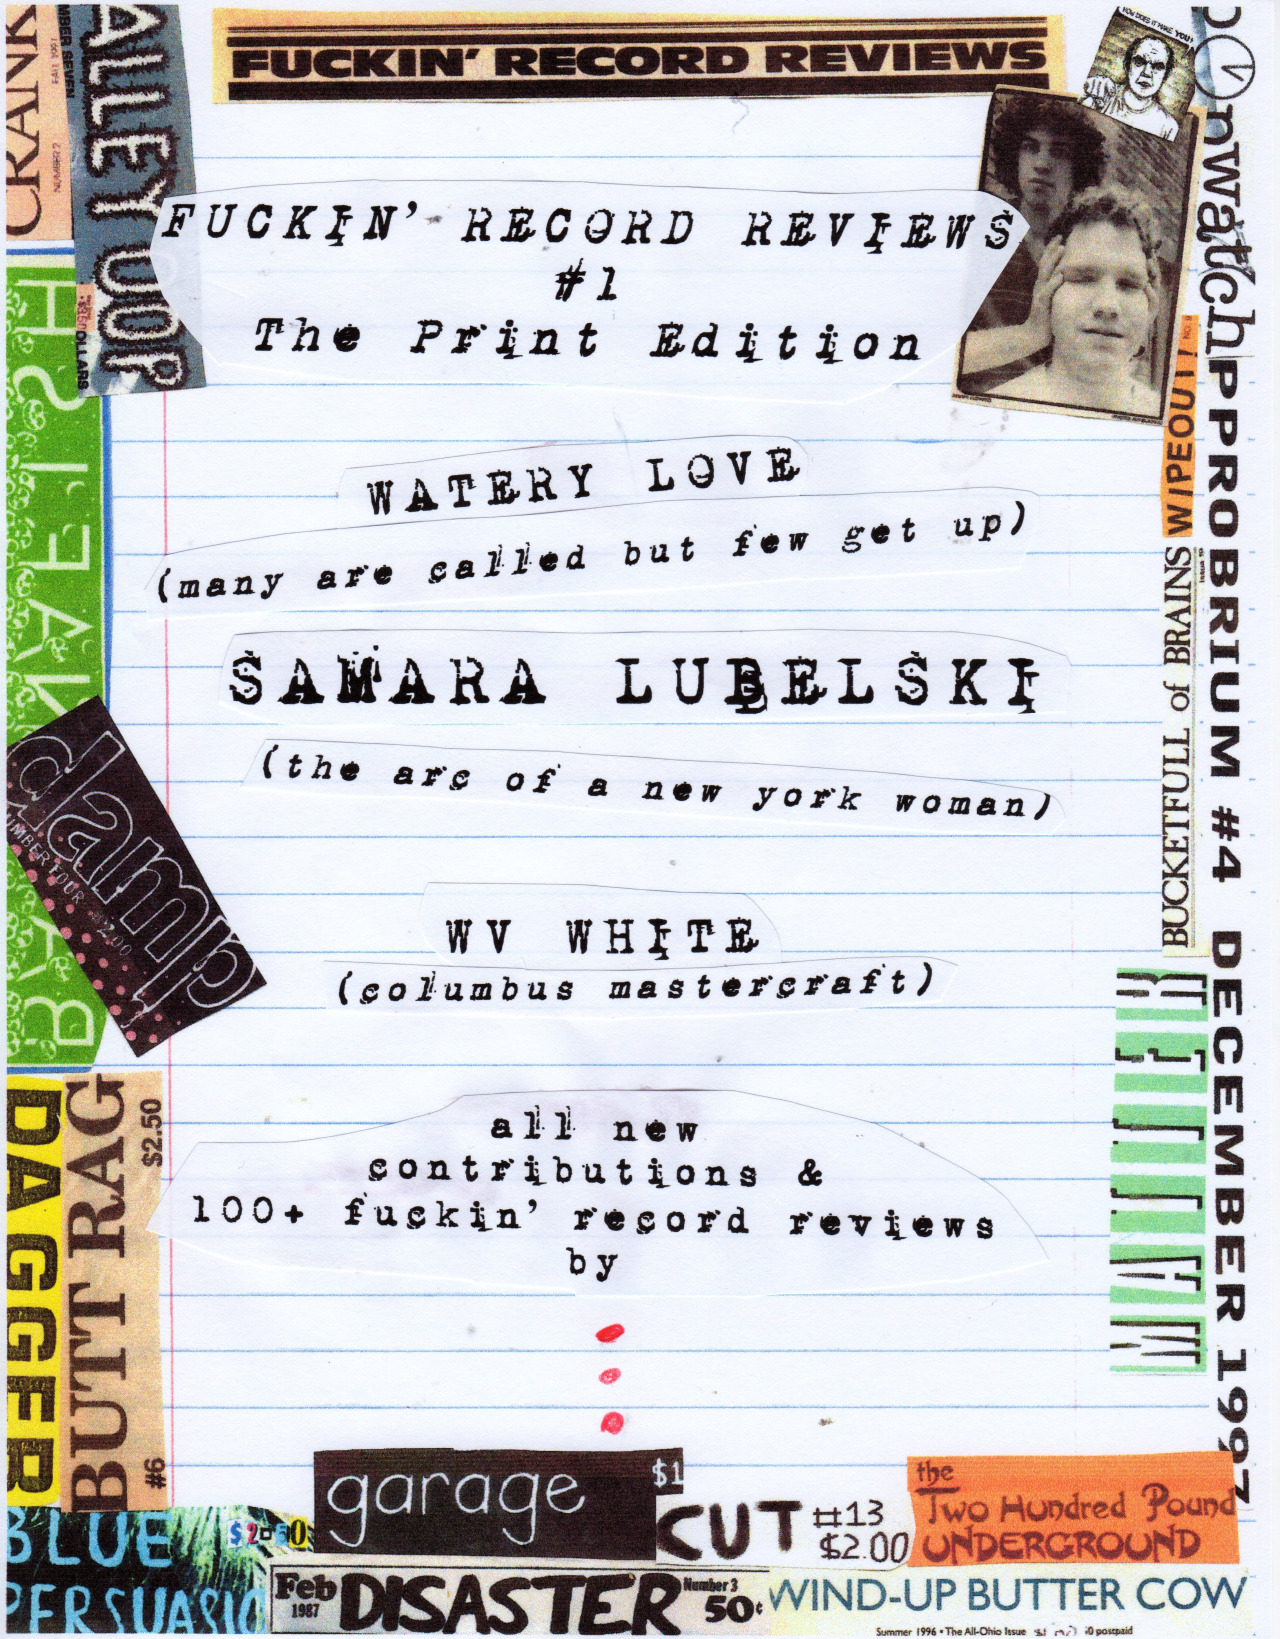 FUCKIN' RECORD REVIEWS
YOU DOES IT MAKE YOU?
FUCKIN' RECORD REVIEWS
#1
The Print Edition
WATERY LOVE
(many are called but few get up)
SAMARA LUBELSKI
(the arc of a new york woman)
WV WHITE
(columbus mastercraft)
all new
contributions &
100+ fuckin' record reviews
by
CRANK
NUMBER 2
FALL 1997
MBER SEVEN
ALLEY OOP
DOLLARS
damp
UMBER FOUR $2.00
DAGGER
BUTT RAG
$2.50
#6
BLUE
PERSUASIO
$2.50
garage
$1
CUT #13
$2.00
the
Two Hundred Pound
UNDERGROUND
Feb
1987
DISASTER
Number 3
50¢
WIND-UP BUTTER COW
Summer 1996 • The All-Ohio Issue
0 postpaid
nwatch
WIPEOUT!
BUCKETFULL of BRAINS
PPROBRIUM #4 DECEMBER 1997
MATTER